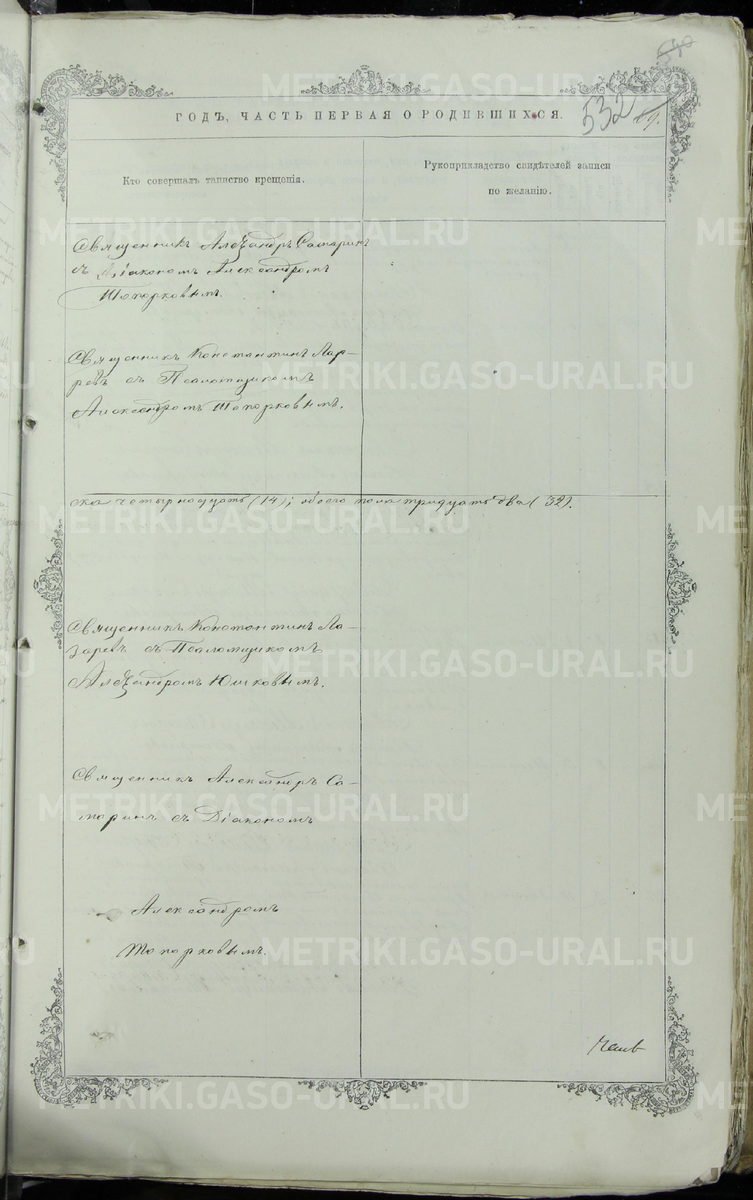 540
532
29.
ГОДЪ, ЧАСТЬ ПЕРВАЯ О РОДИВШИХСЯ.
Кто совершалъ таинство крещенія.
Рукоприкладство свидѣтелей записи
по желанію.
Священникъ Александръ Самаринъ
съ Діакономъ Александромъ
Топорковымъ.
Священникъ Константинъ Лаза-
ревъ съ Псаломщикомъ
Александромъ Топорковымъ.
ска четырнадцать (14); обоего пола тридцать два (32).
Священникъ Константинъ Ла-
заревъ съ Псаломщикомъ
Александромъ Юшковымъ.
Священникъ Александръ Са-
маринъ съ Діакономъ
Александромъ
Топорковымъ.
METRIKI.GASO-URAL.RU